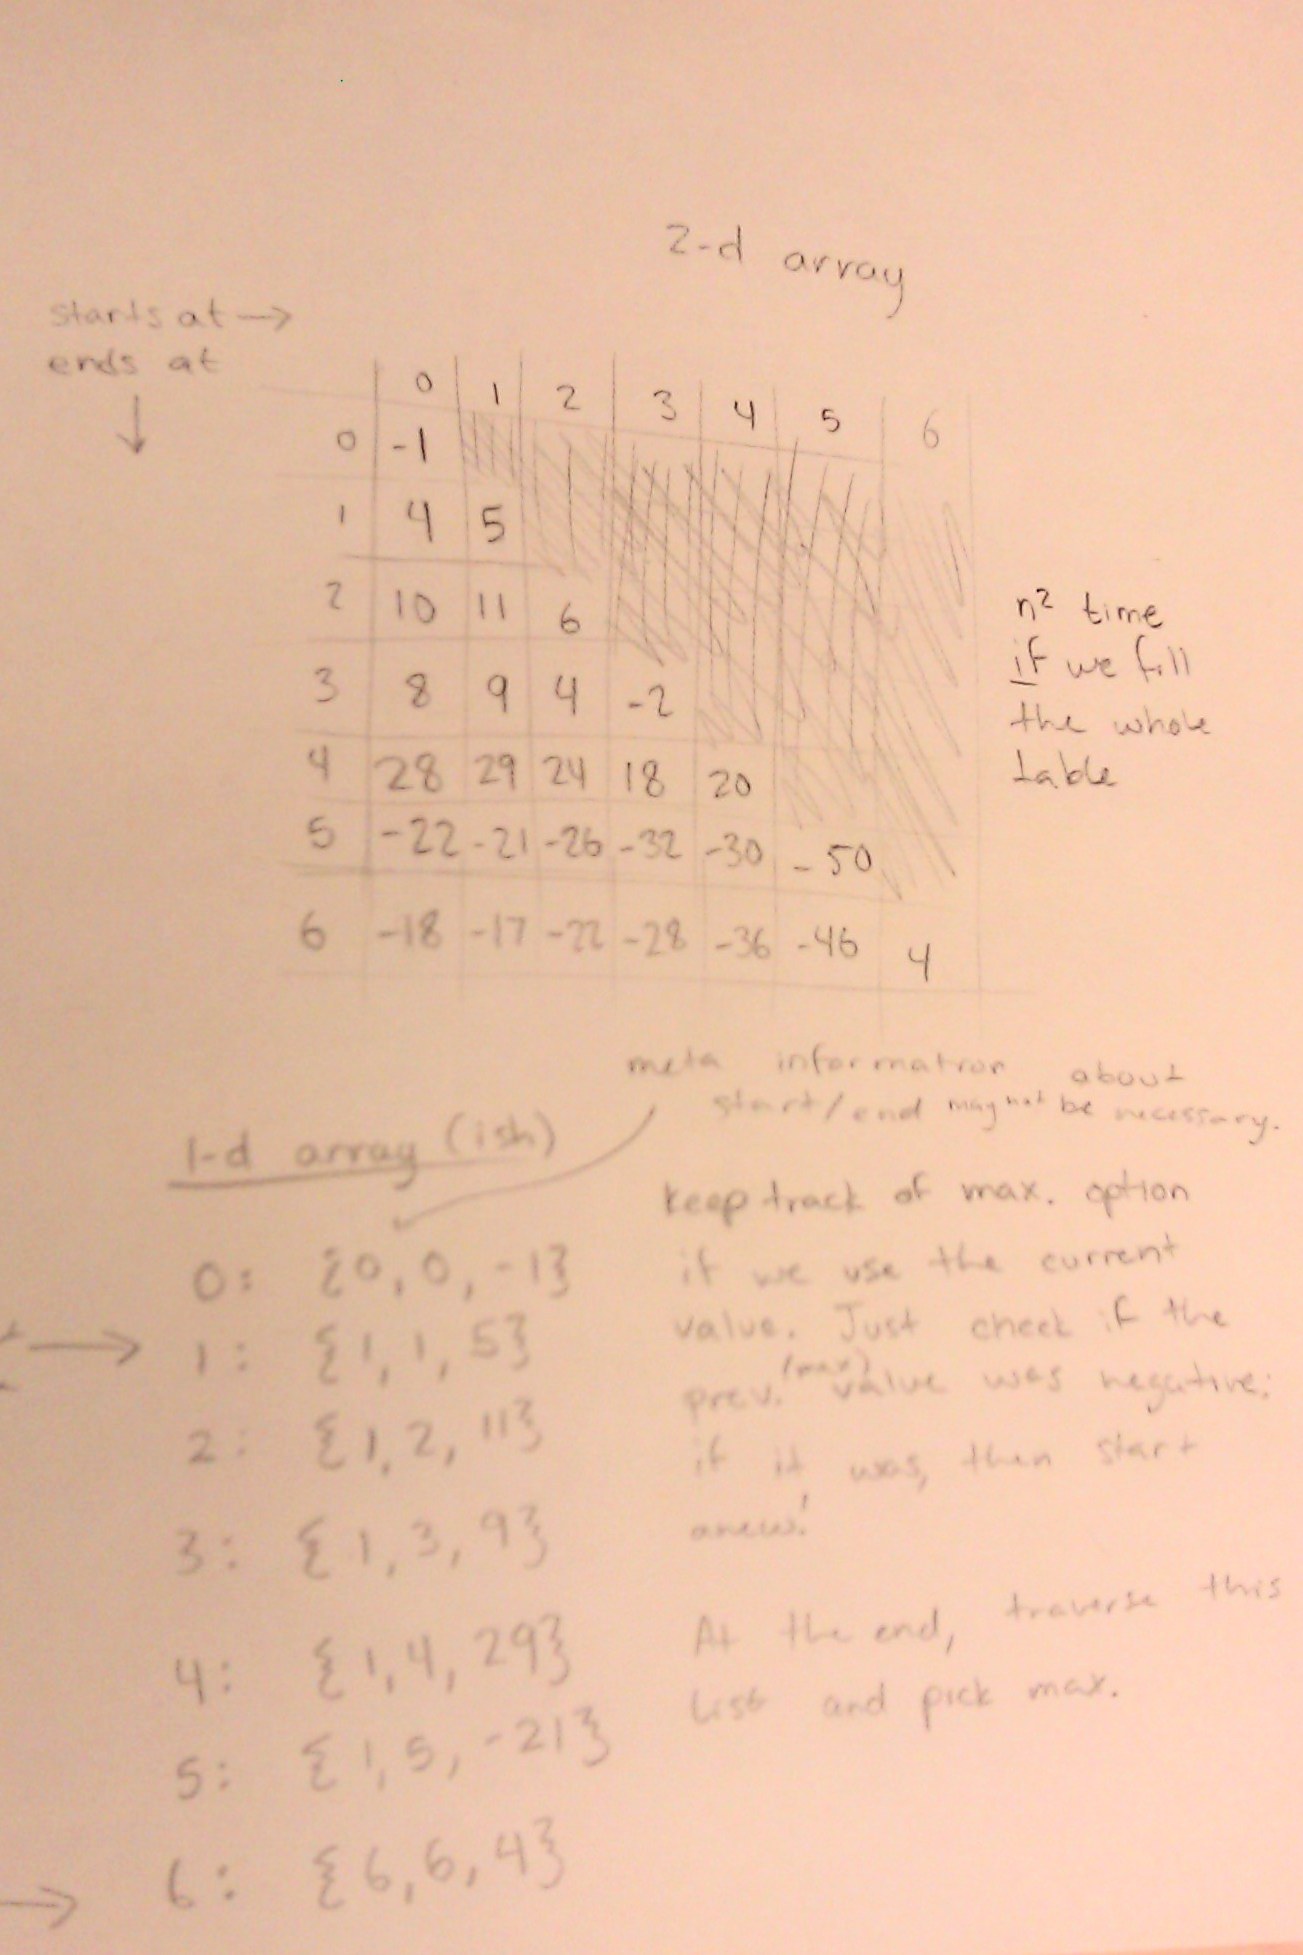 2-d array
starts at →
ends at
↓
0 1 2 3 4 5 6
0 -1
1 4 5
2 10 11 6
3 8 9 4 -2
4 28 29 24 18 20
5 -22 -21 -26 -32 -30 -50
6 -18 -17 -22 -28 -36 -46 4
n² time
if we fill
the whole
table
meta information about
start/end may not be necessary.
1-d array (ish)
0: {0, 0, -1}
→ 1: {1, 1, 5}
2: {1, 2, 11}
3: {1, 3, 9}
4: {1, 4, 29}
5: {1, 5, -21}
→ 6: {6, 6, 4}
keep track of max. option
if we use the current
value. Just check if the
prev. (max) value was negative:
if it was, then start
anew!
At the end, traverse this
list and pick max.